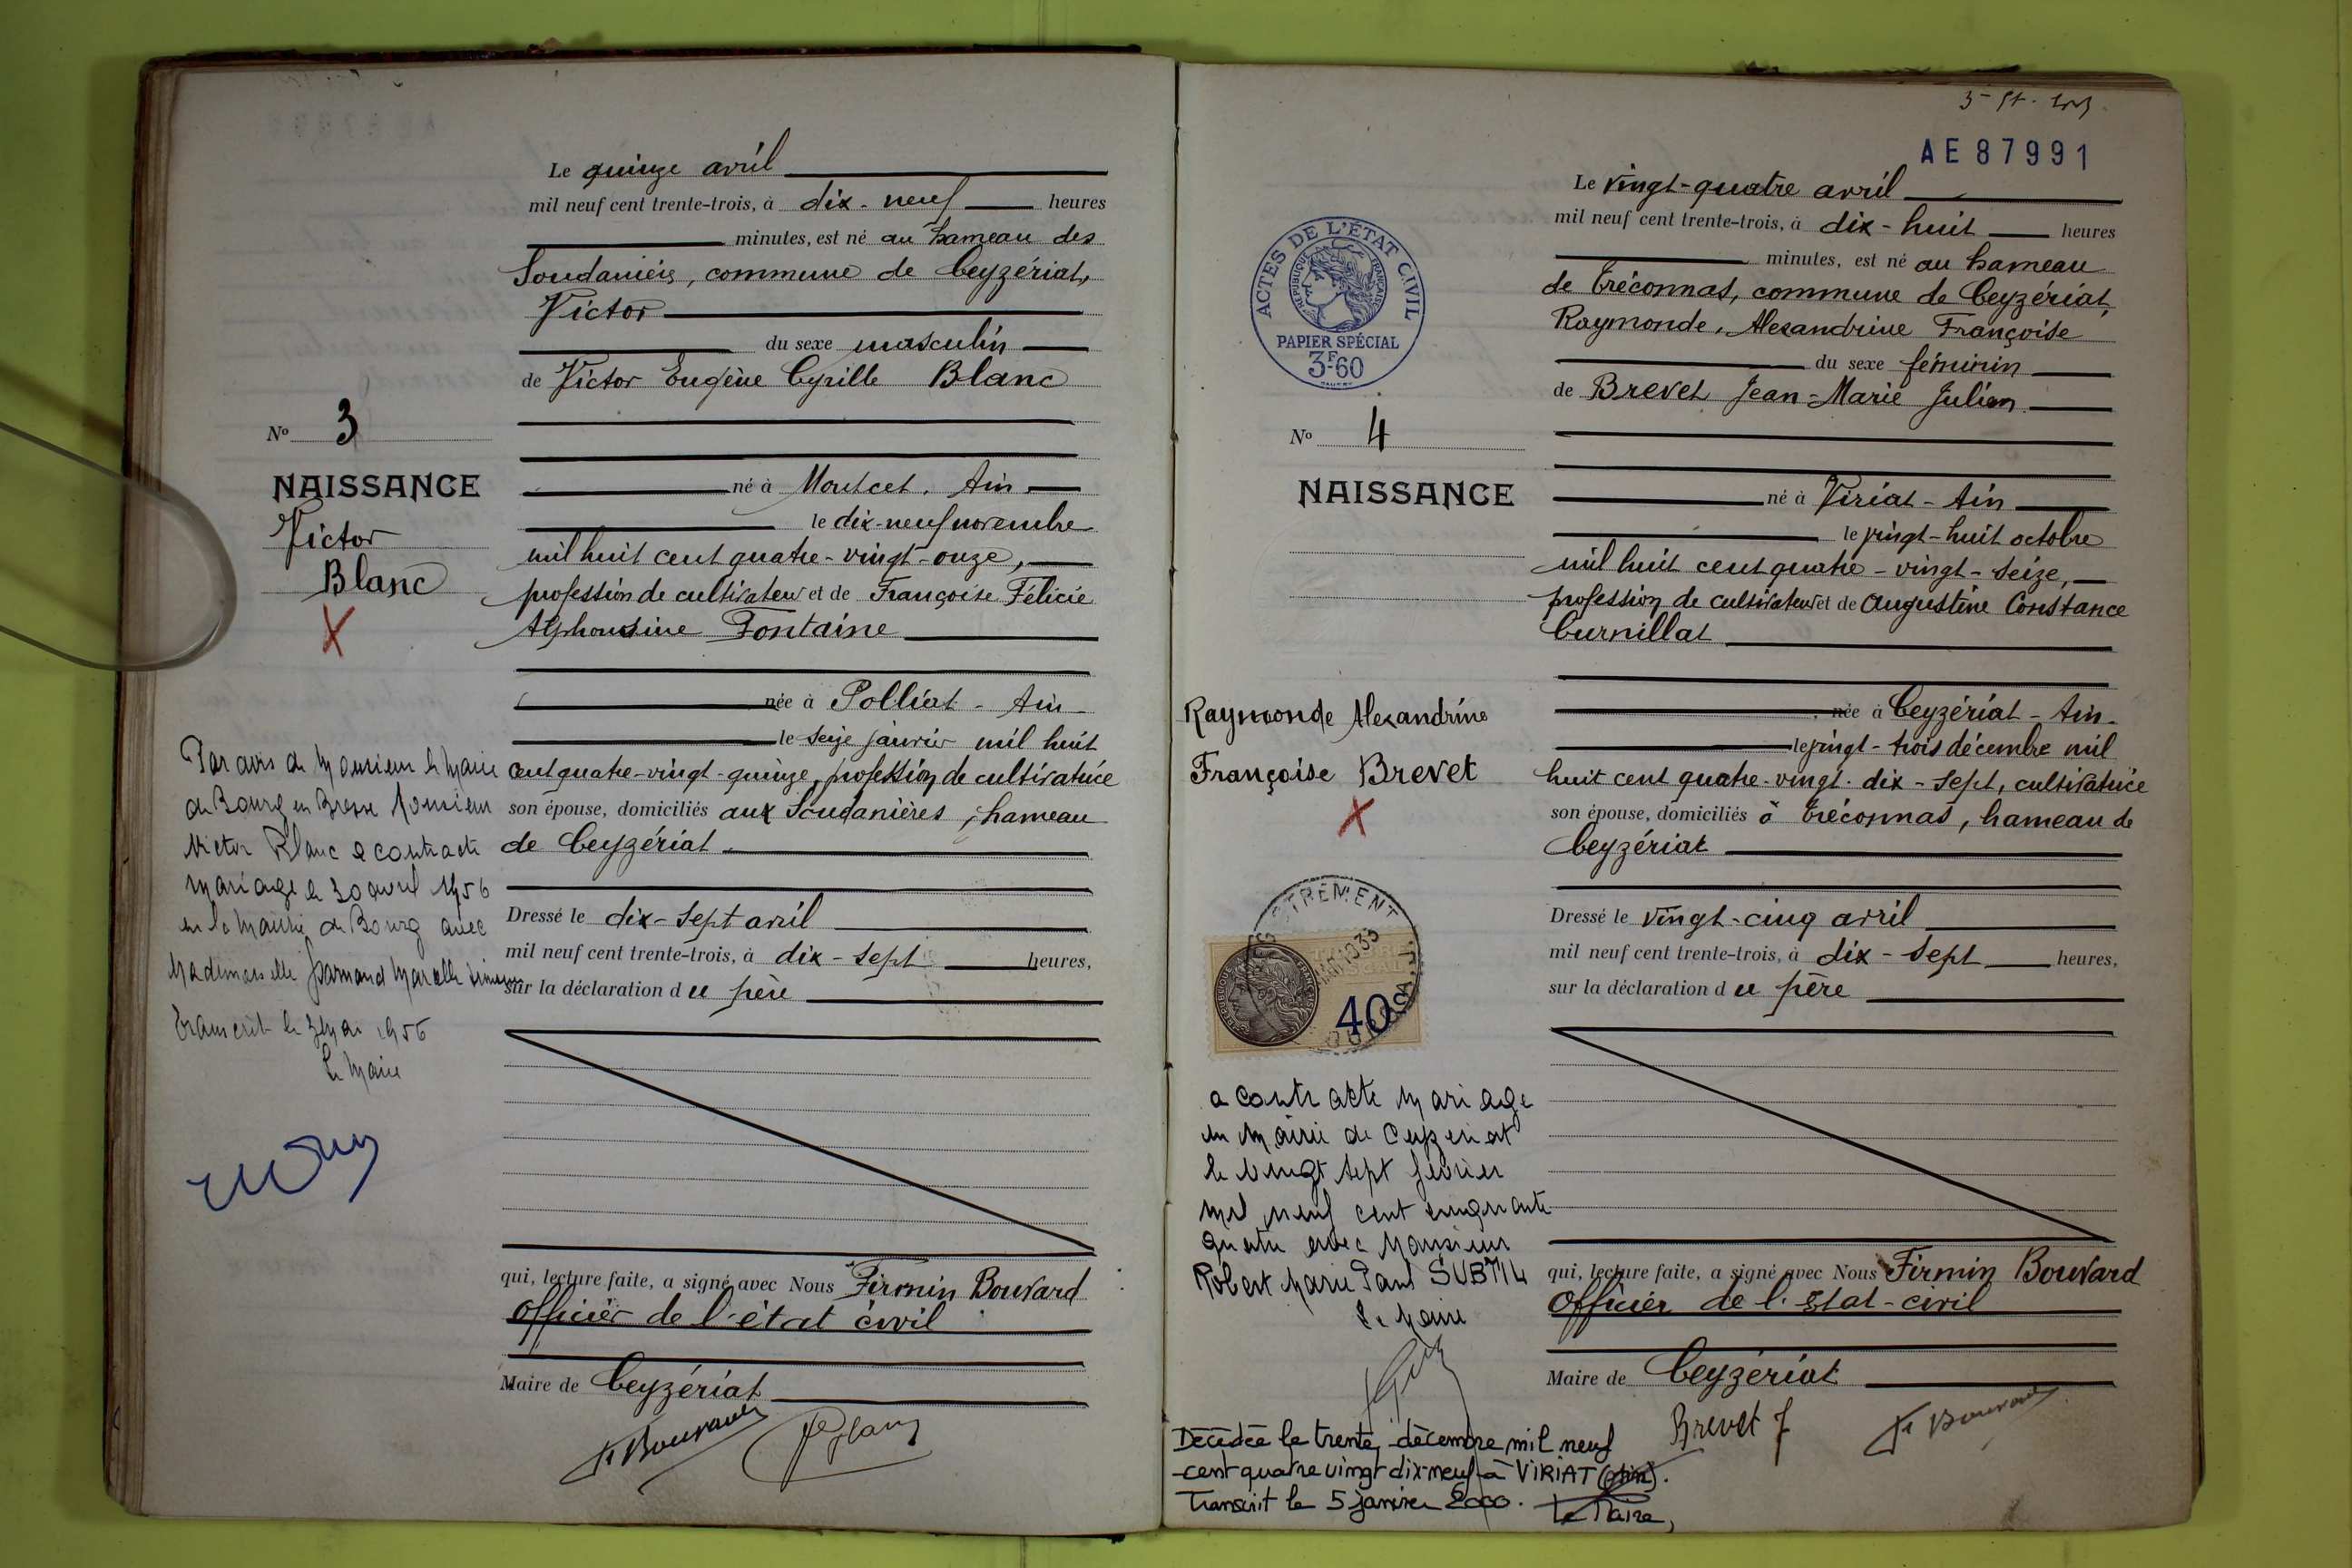 Le quinze avril
mil neuf cent trente-trois, à dix-neuf heures
minutes, est né au hameau des
Soudanières, commune de Ceyzériat,
Victor
du sexe masculin
de Victor Eugène Cyrille Blanc
No 3
NAISSANCE
Victor
Blanc
né à Montcet. Ain
le dix-neuf novembre
mil huit cent quatre-vingt-onze,
profession de cultivateur et de Françoise Félicie
Alphonsine Fontaine
née à Polliat - Ain
le seize janvier mil huit
cent quatre-vingt-quinze, profession de cultivatrice
son épouse, domiciliés aux Soudanières, hameau
de Ceyzériat
Dressé le dix-sept avril
mil neuf cent trente-trois, à dix-sept heures,
sur la déclaration du père
qui, lecture faite, a signé avec Nous Firmin Bouvard
Officier de l'état civil
Maire de Ceyzériat
F Bouvard
Par avis de Monsieur le Maire
de Bourg en Bresse Monsieur
Victor Blanc a contracté
mariage le 30 avril 1956
en la Mairie de Bourg avec
Mademoiselle Marcelle
Transcrit le 3 Mai 1956
Le Maire
AE 87991
Le vingt-quatre avril
mil neuf cent trente-trois, à dix-huit heures
minutes, est né au hameau
de Tréconnas, commune de Ceyzériat,
Raymonde, Alexandrine Françoise
du sexe féminin
de Brevet Jean-Marie Julien
ACTES DE L'ÉTAT CIVIL
RÉPUBLIQUE FRANÇAISE
PAPIER SPÉCIAL
3F60
No 4
NAISSANCE
né à Viriat - Ain
le vingt-huit octobre
mil huit cent quatre-vingt-seize,
profession de cultivateur et de Augustine Constance
Curnillat
née à Ceyzériat - Ain
le vingt-trois décembre mil
huit cent quatre-vingt-dix-sept, cultivatrice
son épouse, domiciliés à Tréconnas, hameau de
Ceyzériat
Raymonde Alexandrine
Françoise Brevet
Dressé le vingt-cinq avril
mil neuf cent trente-trois, à dix-sept heures,
sur la déclaration du père
40
qui, lecture faite, a signé avec Nous Firmin Bouvard
Officier de l'Etat-civil
Maire de Ceyzériat
Brevet J
F Bouvard
a contracté mariage
en Mairie de Ceyzeriat
le vingt sept février
mil neuf cent cinquante
quatre avec Monsieur
Robert Marie Paul SUBTIL
Le Maire
Décédée le trente décembre mil neuf
cent quatre vingt dix-neuf à VIRIAT (Ain).
Transcrit le 5 janvier 2000. Le Maire,